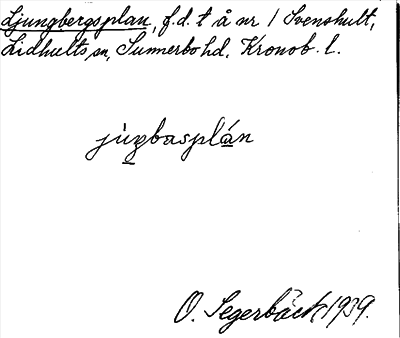 Ljungbergsplan, f.d. t å nr 1 Svenshult,
Lidhults sn, Sunnerbo hd, Kronob. l.
jùg̲basplá̲n
O. Segerbäck 1939.